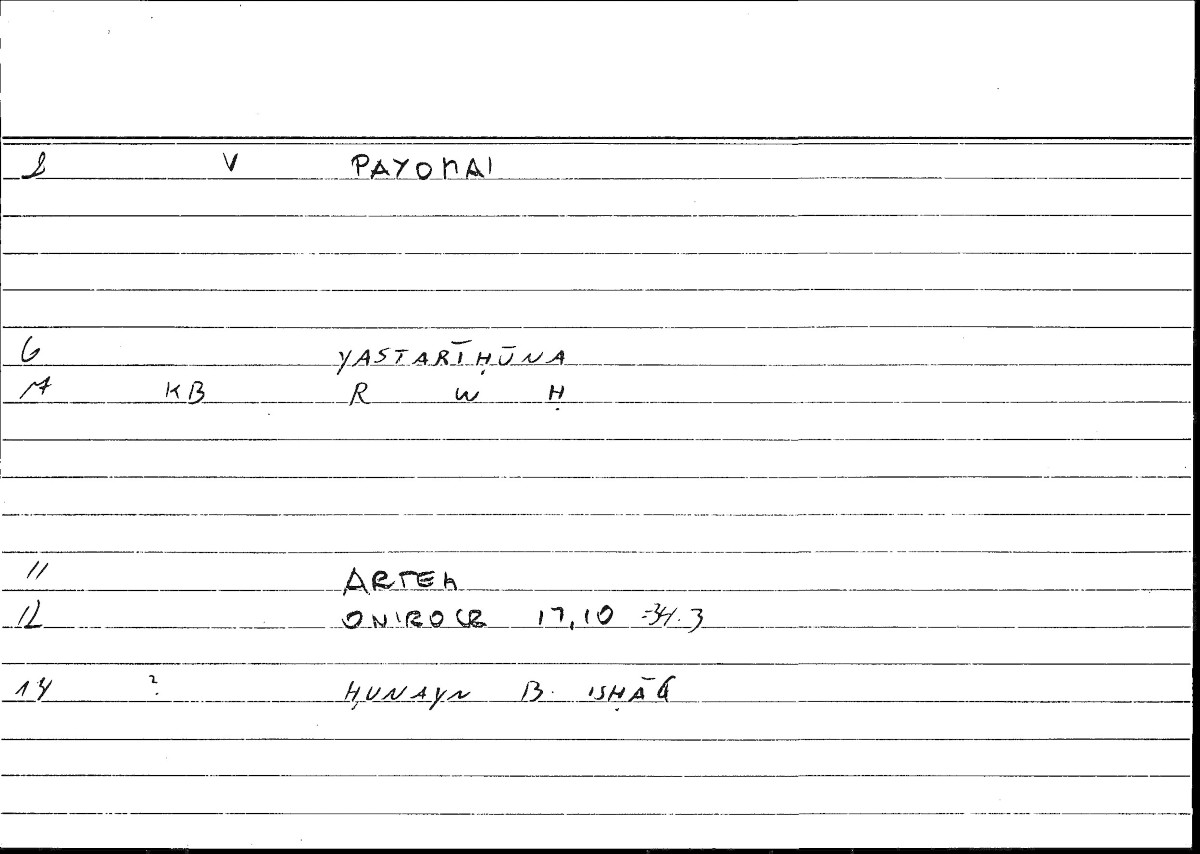 2 V PAYOMAI
6 YASTARĪḤŪNA
7 KB R W Ḥ
11 ARTEM
12 ONIROCR 17,10 -34.3
14 ? ḤUNAYN B. ISḤĀQ